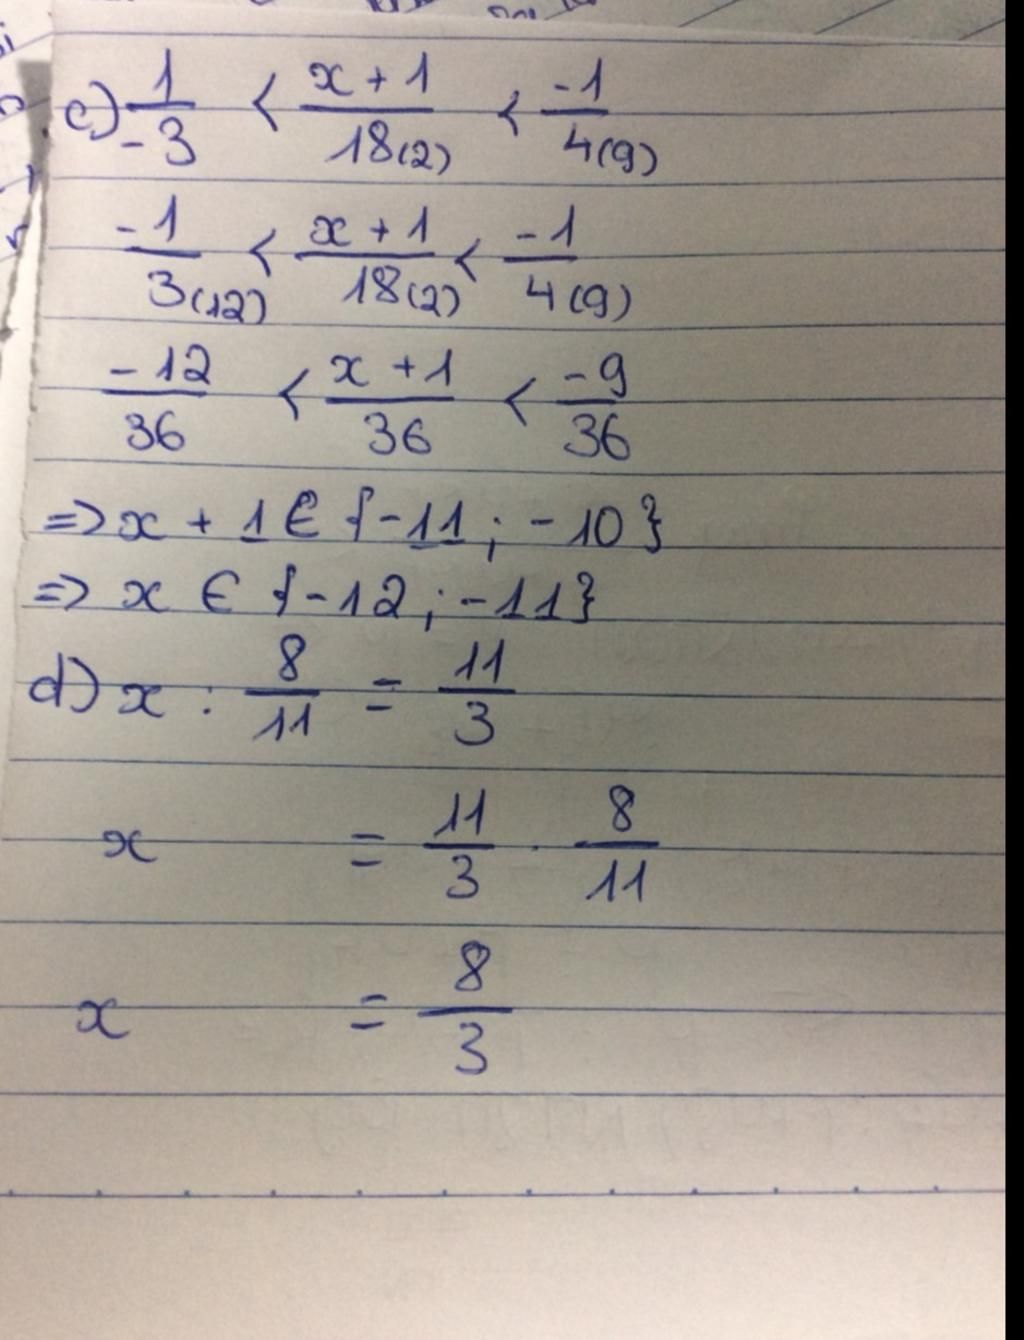 c) 1/-3 < x+1/18(2) < -1/4(9)
-1/3(12) < x+1/18(2) < -1/4(9)
-12/36 < x+1/36 < -9/36
=> x + 1 ∈ {-11; -10}
=> x ∈ {-12; -11}
d) x : 8/11 = 11/3
x = 11/3 . 8/11
x = 8/3